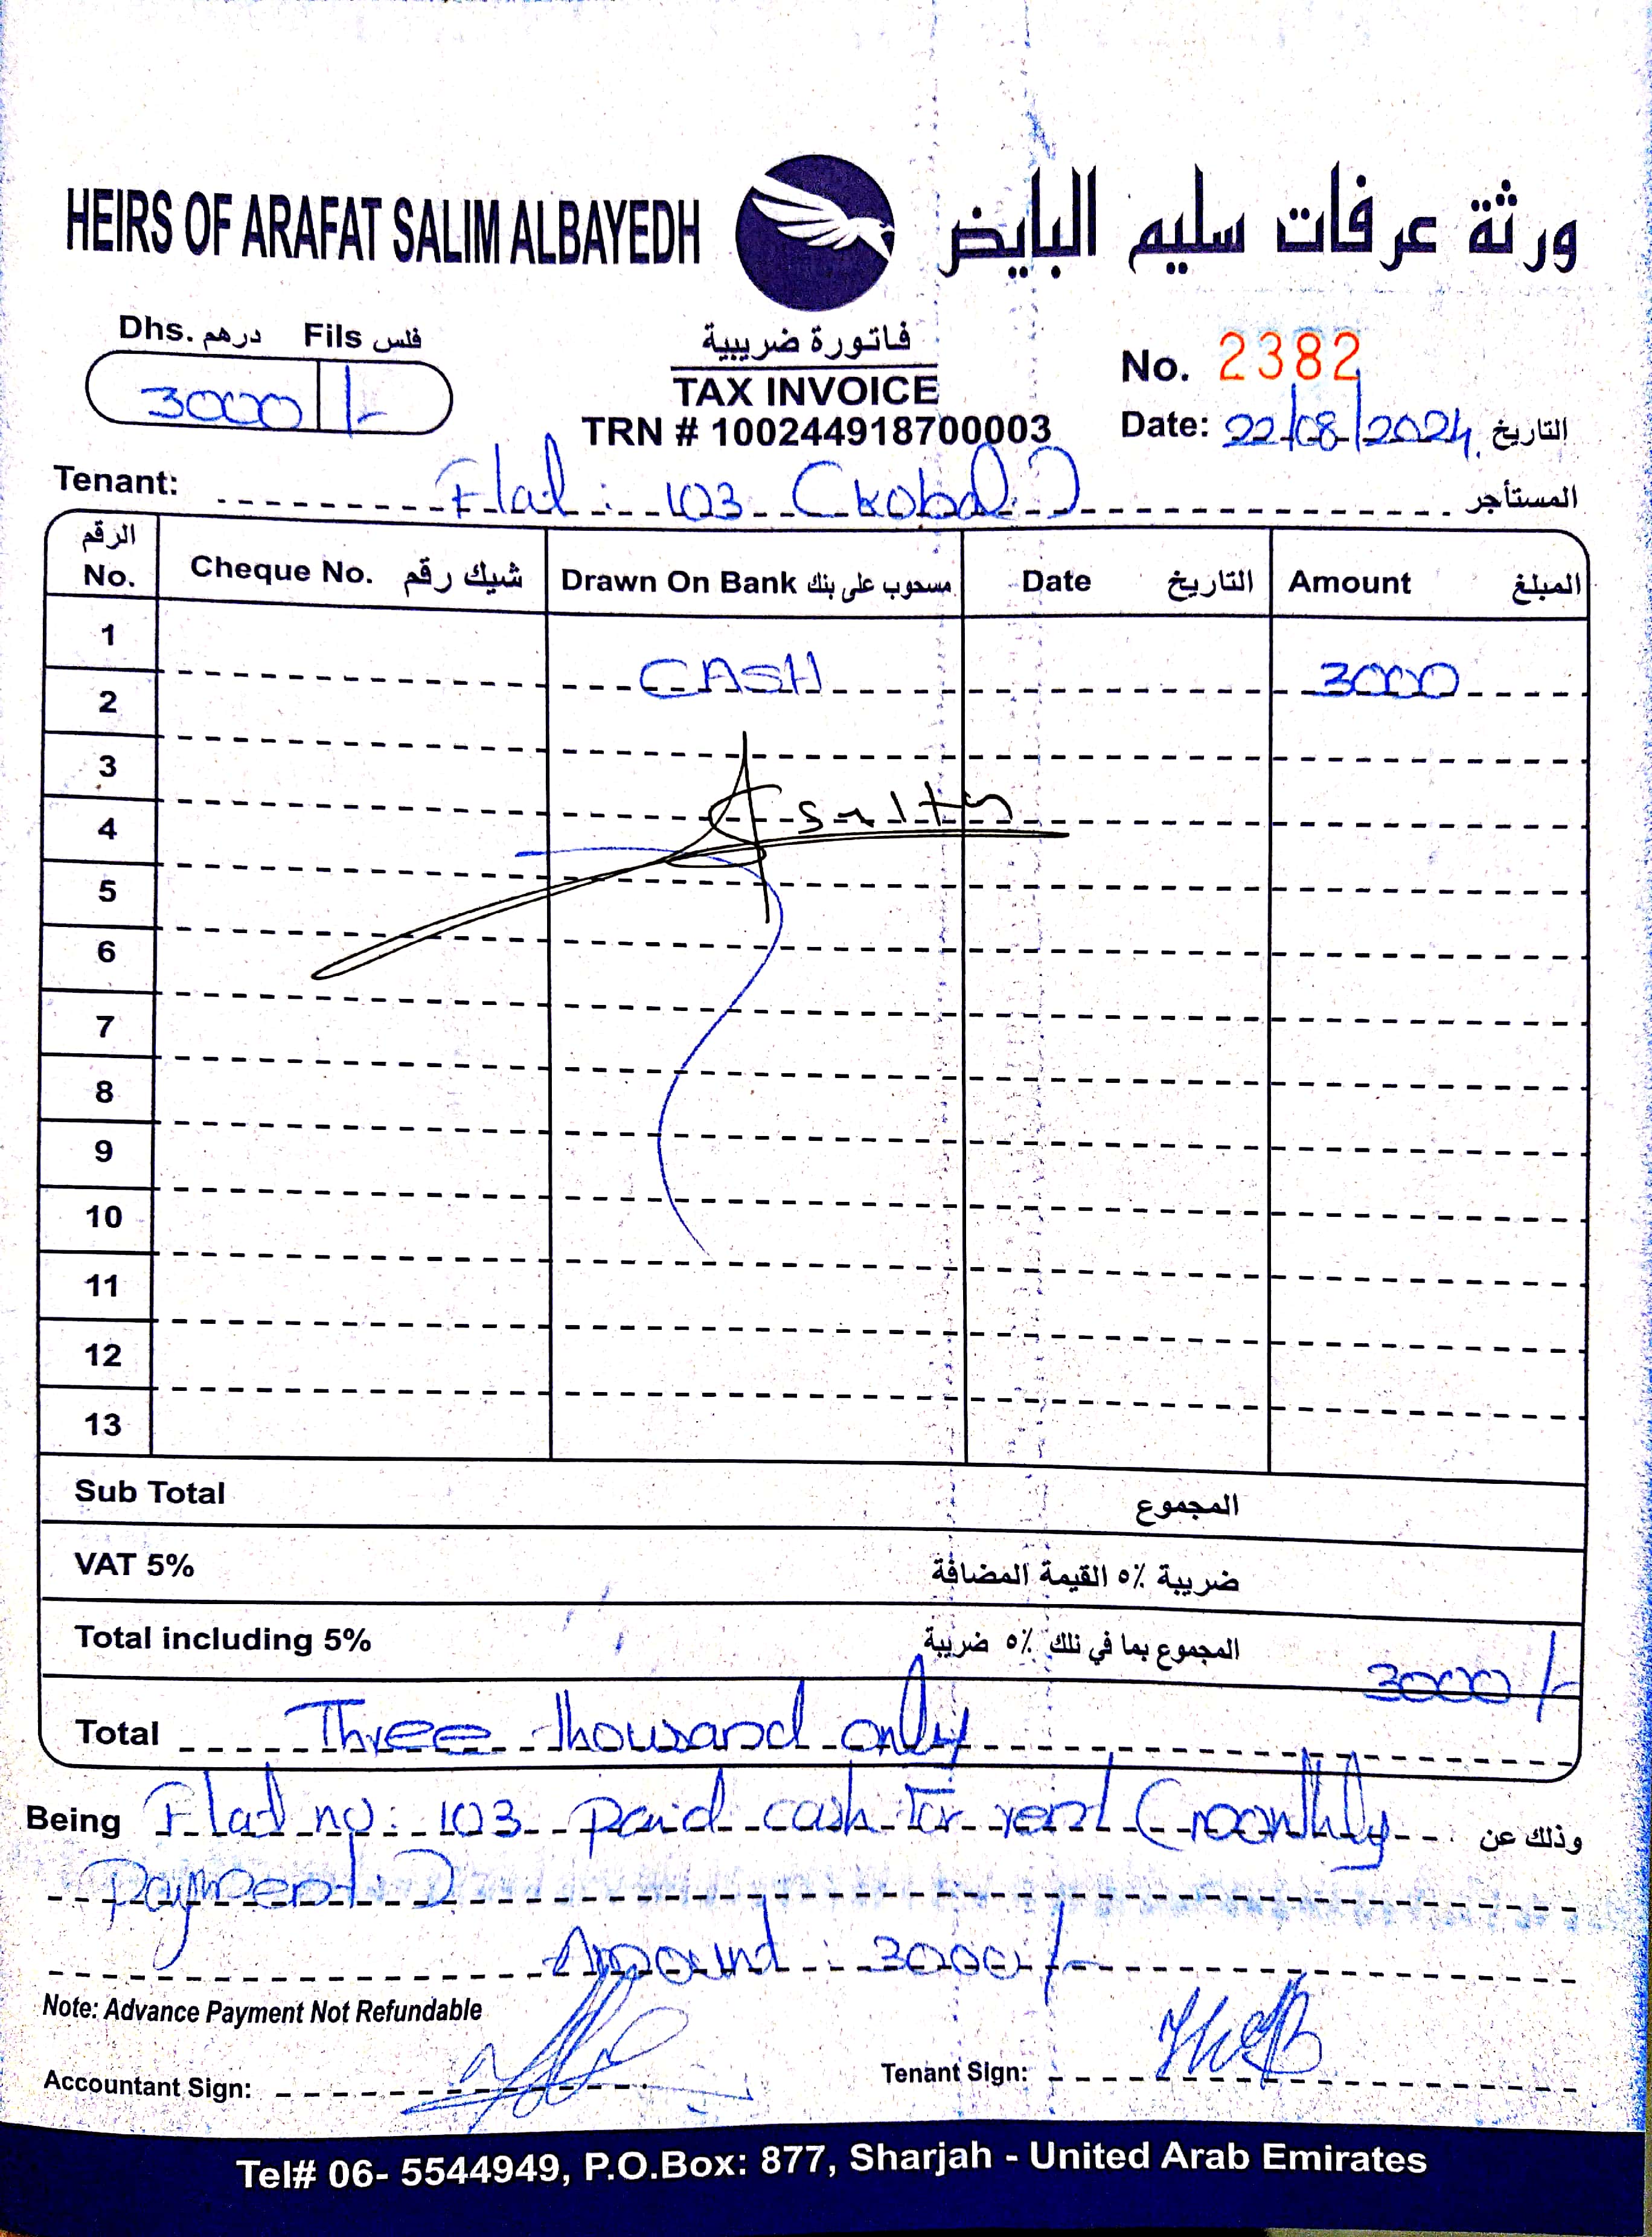 HEIRS OF ARAFAT SALIM ALBAYEDH ورثة عرفات سليم البايض
Dhs. درهم Fils فلس
3000 /-
فاتورة ضريبية
TAX INVOICE
TRN # 100244918700003
No. 2382
Date: 22/08/2024 التاريخ
Tenant: Flat : 103 ( المستأجر
الرقم No. Cheque No. شيك رقم Drawn On Bank مسحوب على بنك Date التاريخ Amount المبلغ
1 CASH 3000
2
3
4
5
6
7
8
9
10
11
12
13
Sub Total المجموع
VAT 5% ضريبة ٥٪ القيمة المضافة
Total including 5% المجموع بما في ذلك ٥٪ ضريبة 3000 /-
Total Three thousand only
Being Flat no: 103 paid cash for rent (monthly وذلك عن
Payment )
Amount : 3000/-
Note: Advance Payment Not Refundable
Accountant Sign: Tenant Sign:
Tel# 06- 5544949, P.O.Box: 877, Sharjah - United Arab Emirates